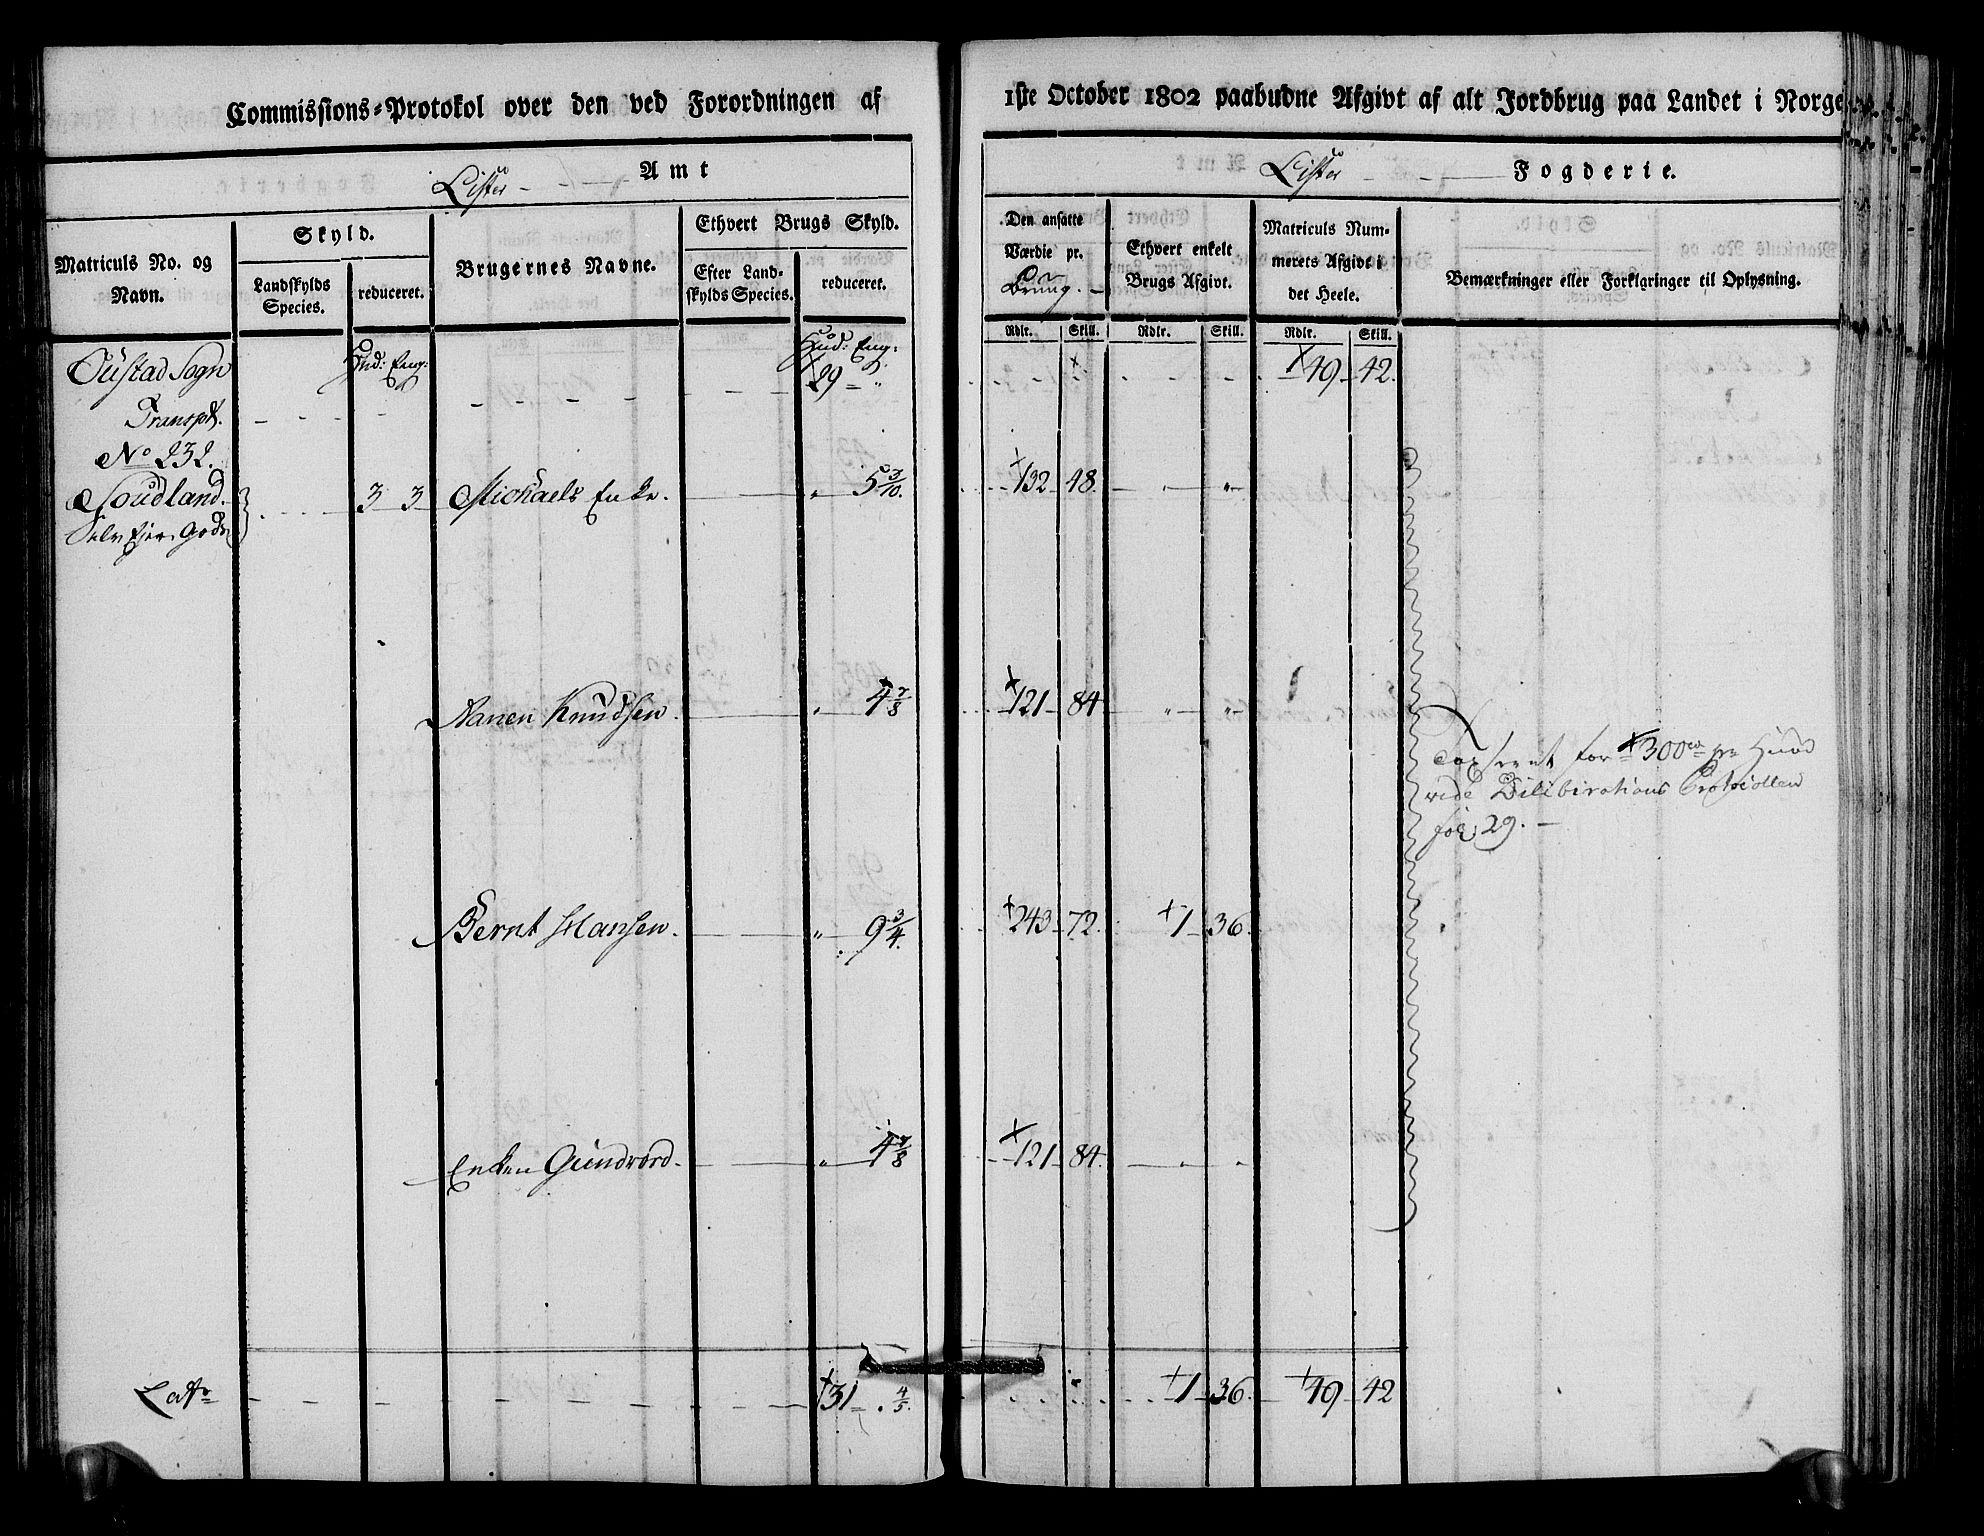 Commissions-Protokol over den ved Forordningen af 1ste October 1802 paabudne Afgivt af alt Jordbrug paa Landet i Norge.
Lister Amt
Lister Fogderie.
Matriculs No. og Navn.
Skyld.
Landskylds Species.
reduceret.
Brugernes Navne.
Ethvert Brugs Skyld.
Efter Landskylds Species.
reduceret.
Den ansatte Værdie pr. Brug.
Ethvert enkelt Brugs Afgivt.
Matriculs Nummerets Afgivt i det Heele.
Bemærkninger eller Forklaringer til Oplysning.
Rdlr. Skill. Rdlr. Skill. Rdlr. Skill.
Hud: Eng: Hud: Eng:
Oustad Sogn
Transpt. 29 " 49 42.
No 232.
Soudland. 3 3 Michaels Enke. " 5 3/10. 132 48. " "
Selv Ejer Gods
Nanen Knudsen. " 4 7/8 121 84 " "
Taxseret for 300 rd pr Huud
vide Dilibirations Protocollen
fol: 29.
Bernt Hansen. " 9 3/4. 243 72. 1 36.
Enken Gundvord. " 4 7/8 121 84. " "
Lats 31 4/5. 1 36. 49 42